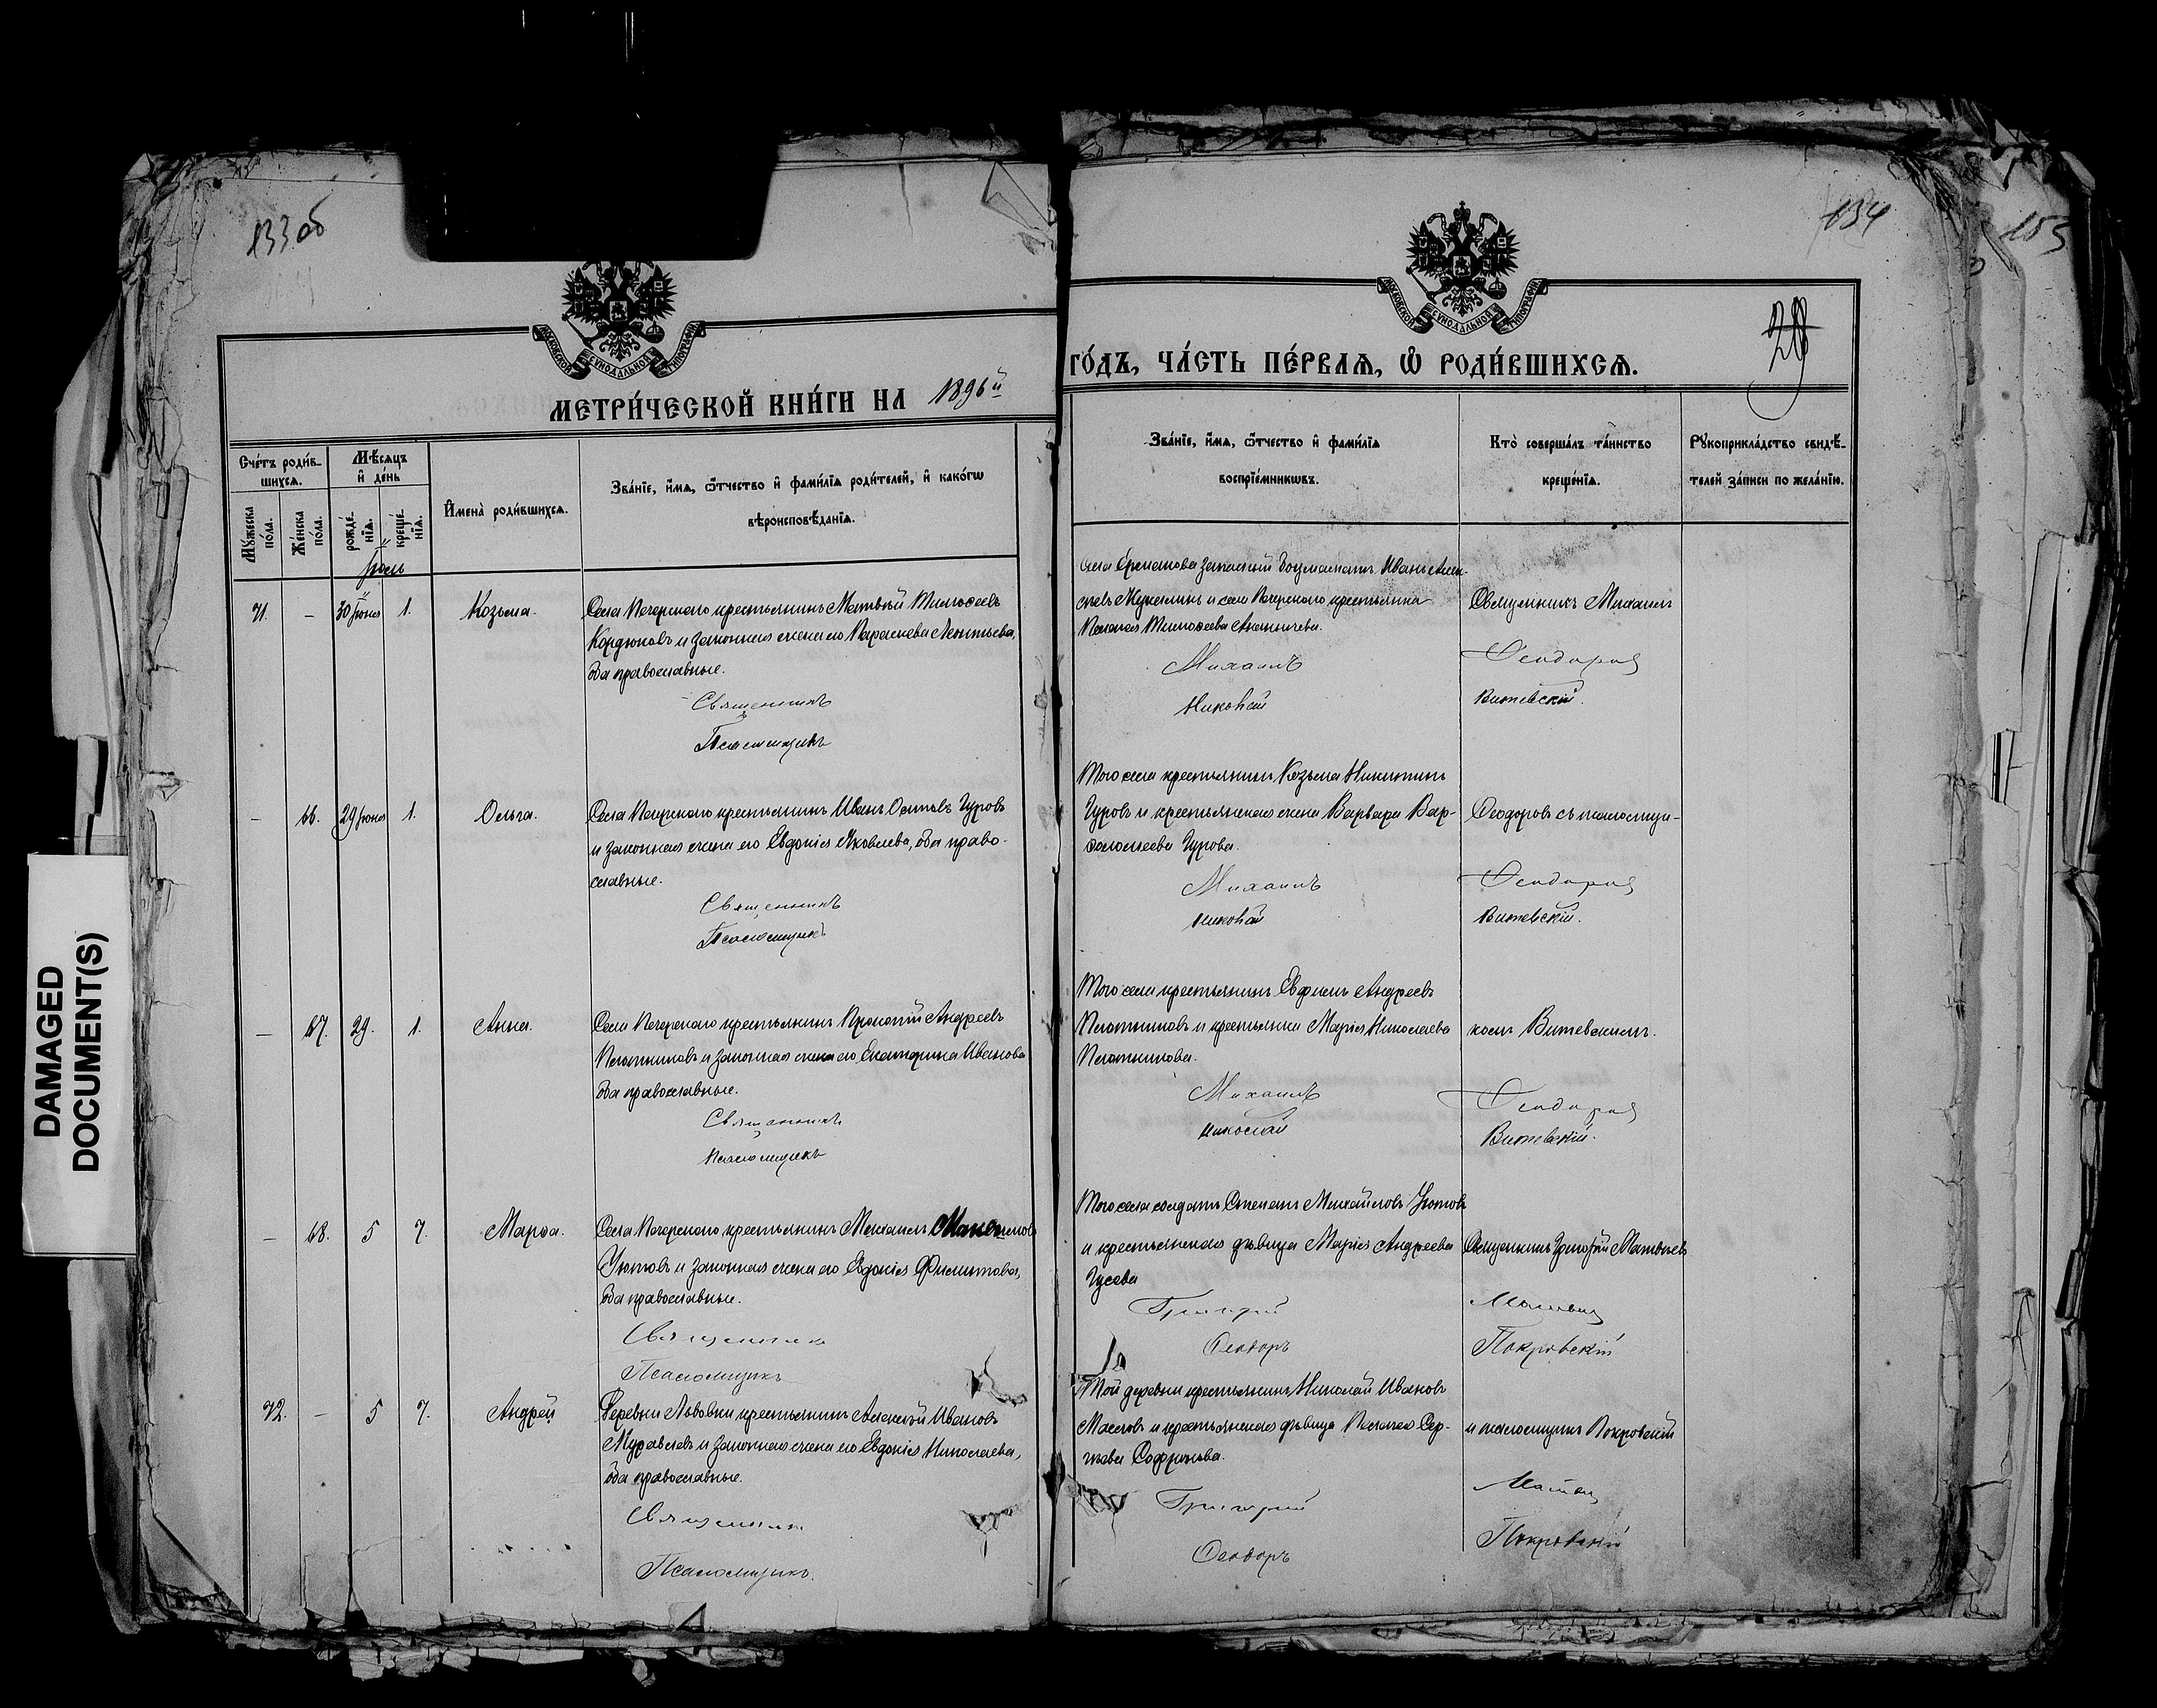 133об
134
155
29
МОСКОВСКОЙ СѴНОДАЛЬНОЙ ТИПОГРАФІИ
МОСКОВСКОЙ СѴНОДАЛЬНОЙ ТИПОГРАФІИ
МЕТРИ́ЧЕСКОЙ КНИ́ГИ НА 1896й
ГО́ДЪ, ЧА́СТЬ ПЕ́РВАѦ, Ѽ РОДИ́ВШИХСѦ.
Сче́тъ роди́в-
шихсѧ.
Мѣ́сѧцъ
и҆ де́нь
Мꙋ́жеска
по́ла.
Же́нска
по́ла.
рожде́-
нїѧ.
креще́-
нїѧ.
И҆мена̀ роди́вшихсѧ.
Зва́нїе, и҆́мѧ, ѻ҆́тчество и҆ фами́лїѧ роди́телей, и҆ како́гѡ
вѣроисповѣ́данїѧ.
Зва́нїе, и҆́мѧ, ѻ҆́тчество и҆ фами́лїѧ
воспрїе́мникѡвъ.
Кто̀ соверша́лъ та́инство
креще́нїѧ.
Рꙋкоприкла́дство свидѣ́-
телей за́писи по жела́нїю.
Іюль
71. – 30 Іюня 1. Козьма.
Села Печерскаго крестьянинъ Матвѣй Тимоѳеевъ
Кордюковъ и законная жена его Параскева Леонтьева,
оба православные.
Священникъ
Псаломщикъ
села Ермакова запасный боцманатъ Иванъ Алек-
сѣевъ Жукалинъ и села Печерскаго крестьянка
Пелагея Тимоѳеева Ананьичева.
Михаилъ
Николай
Священникъ Михаилъ
Ѳеодоровъ
Витевскій.
– 66. 29 Іюня 1. Ольга.
Села Печерскаго крестьянинъ Иванъ Осиповъ Гуровъ
и законная жена его Евдокія Яковлева, оба право-
славные.
Священникъ
Псаломщикъ
Того села крестьянинъ Козьма Никитинъ
Гуровъ и крестьянская жена Варвара Вар-
ѳоломеева Гурова.
Михаилъ
Николай
Ѳеодоровъ съ псаломщи-
Ѳеодоровъ
Витевскій.
– 67. 29. 1. Анна.
Села Печерскаго крестьянинъ Прокопій Андреевъ
Плотниковъ и законная жена его Екатерина Иванова
оба православные.
Священникъ
Псаломщикъ
Того села крестьянинъ Евфимъ Андреевъ
Плотниковъ и крестьянка Марія Николаева
Плотникова.
Михаилъ
Николай
комъ Витевскимъ.
Ѳеодоровъ
Витевскій.
– 68. 5 7. Марѳа.
Села Печерскаго крестьянинъ Михаилъ
Утовъ и законная жена его Евдокія Филиппова,
оба православные.
Священникъ
Псаломщикъ
Того села солдатъ Степанъ Михайловъ Утовъ
и крестьянская дѣвица Марія Андреева
Гусева
Григорій
Ѳеодоръ
Священникъ Григорій Матвѣевъ
Матвѣевъ
Покровскій
72. – 5 7. Андрей
Деревни Львовки крестьянинъ Алексѣй Ивановъ
Муравлевъ и законная жена его Евдокія Николаева,
оба православные.
Священникъ
Псаломщикъ.
Той деревни крестьянинъ Николай Ивановъ
Масловъ и крестьянская дѣвица Пелагея Сер-
гѣева Софронова.
Григорій
Ѳеодоръ
и псаломщикъ Покровскій
Матвѣевъ
Покровскій
DAMAGED
DOCUMENT(S)